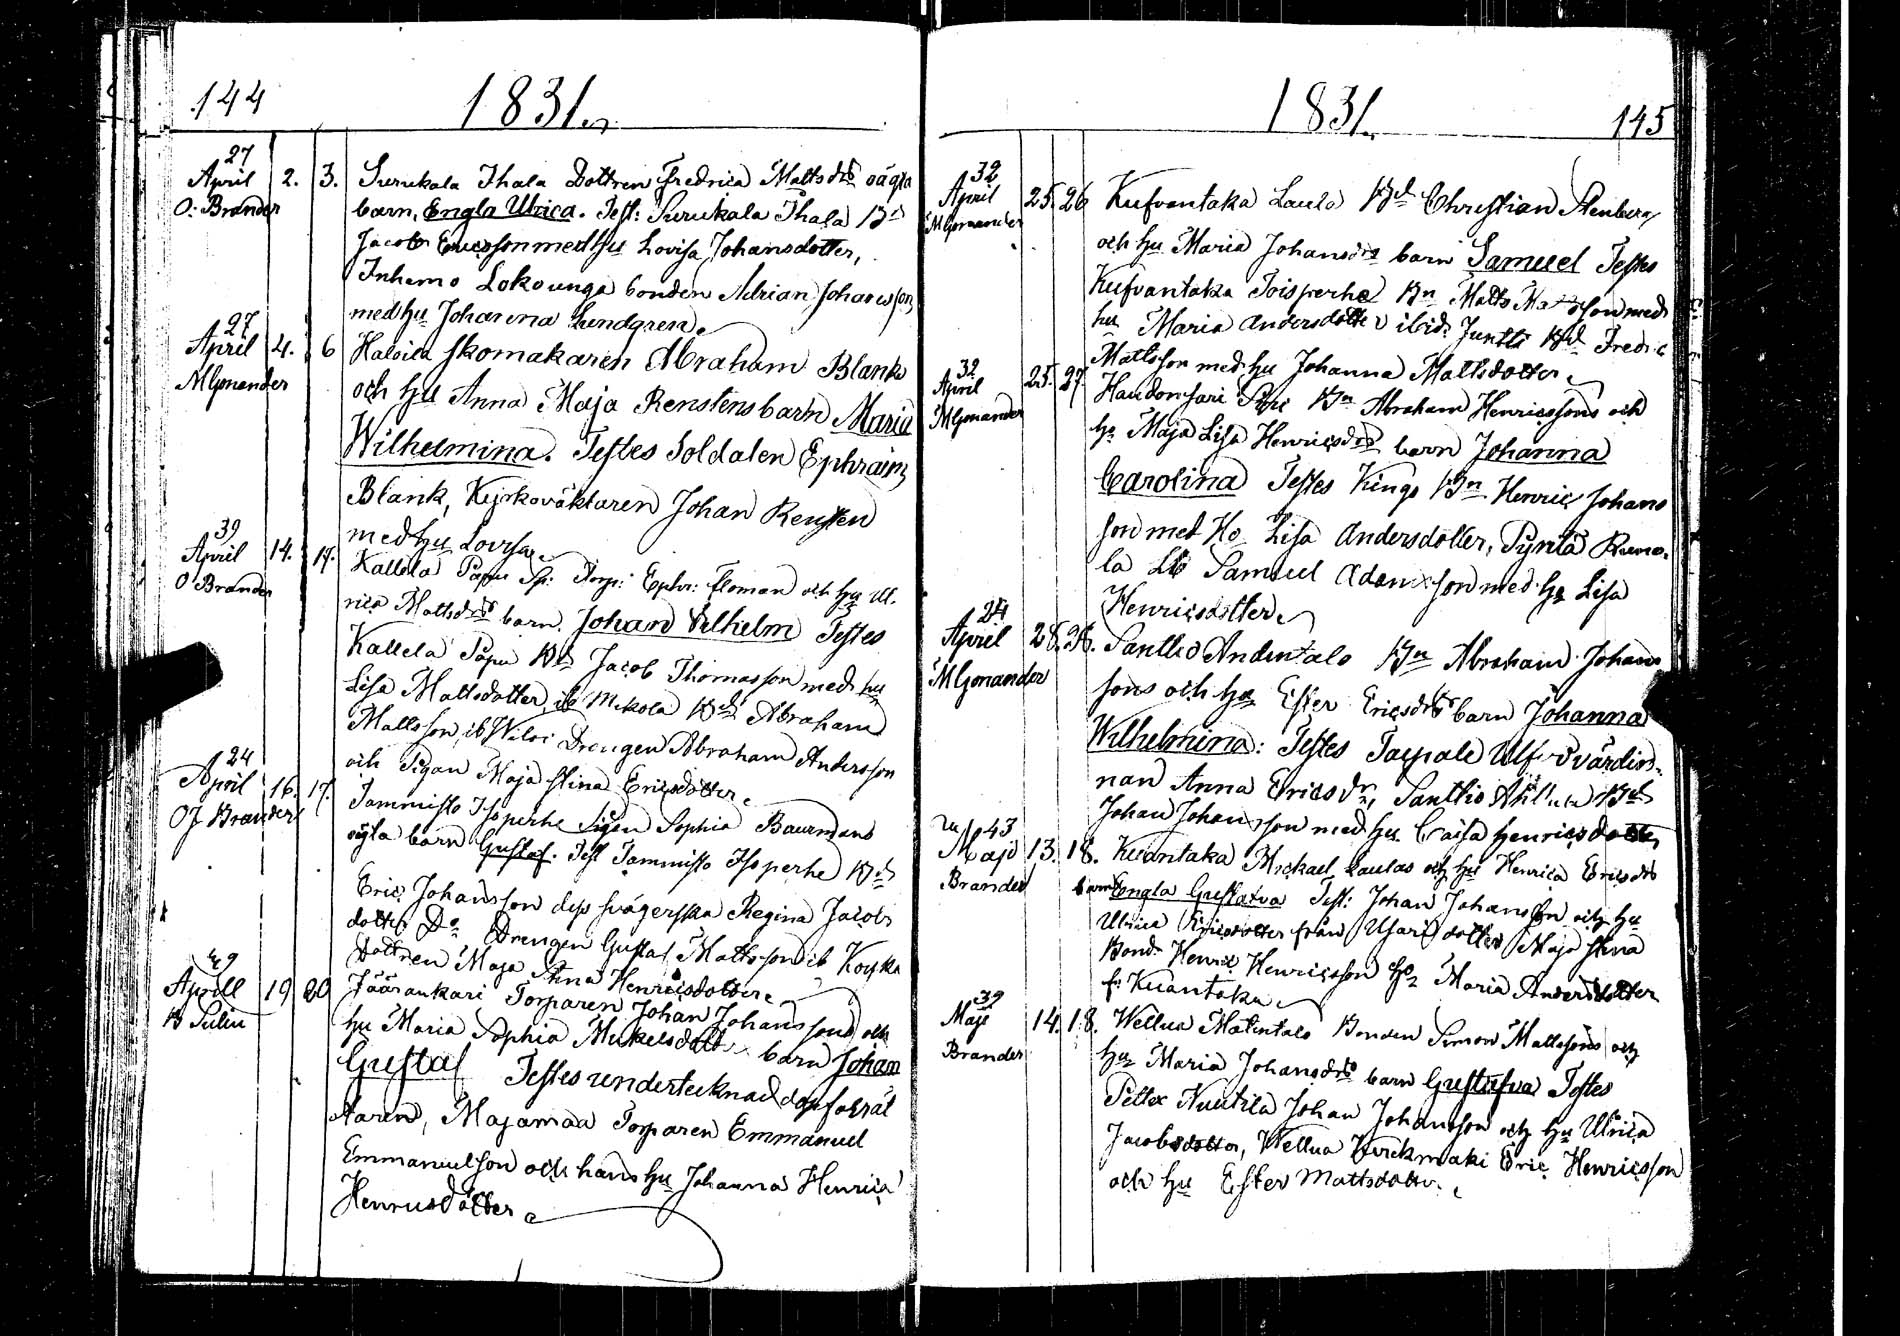 144 1831.
27
April 2. 3. Surukala Ihala Dottren Fredrica Mattsdrs oägta
O: Brander barn, Engla Ulrica. Test: Surukala Ihala Bd
Jacob Ericsson med hu Lovisa Johansdotter,
Inhemo Lokounga bonden Adrian Johansson
med hu Johanna Lundgren.
27
April 4. 6 Haloila skomakaren Abraham Blanks
MGonander och hu Anna Maja Renstens barn Maria
Wilhelmina. Testes Soldaten Ephraim
Blank, Kyrkoväktaren Johan Rensten
med hu Lovisa
39
April 14. 17. Kallela Papu Sp: Torp: Ephr: Floman och hu Ul-
O Brander rica Mattsdrs barn Johan Vilhelm Testes
Kallela Papu Bd Jacob Thomasson med hu
Lisa Mattsdotter, ib Mikola Bd Abraham
Mattsson, ib Wiloi Drengen Abraham Andersson
och Pigan Maja Stina Ericsdotter.
24
April 16. 17. Tammisto Isoperhe Pigan Sophia Baurmans
OJ Brander ogta barn Gustaf. Test Tammisto Isoperhe Bd
Eric Johansson dess svägerska Regina Jacobs
dotter Do Drengen Gustaf Mattsson ib Koyka
Dottren Maja Stina Henricsdotter.
49
Aprill 19 20 Jäärankari Torparen Johan Johanssons och
hu Maria Sophia Mickelsdotters barn Johan
Gustaf Testes undertecknad dopförrät
taren, Majamaa Torparen Emmanuel
Emmanuelsson och hans hu Johanna Henrica
Henricsdotter
1831. 145
32
April 25. 26 Kufvantaka Laula Bd Christian Stenberg
MGonander och hu Maria Johansdrs barn Samuel Testes
Kufvantaka Toisperhe Bn Matts Mattsson med
hu Maria Andersdotter ibid. Juntti Bd Fredric
Mattsson med hu Johanna Mattsdotter
32
April 25. 27. Haudonsari Piri Bn Abraham Henricssons och
MGonander hu Maja Lisa Henricsdrs barn Johanna
Carolina Testes Kings Bn Henric Johans
son med Ho Lisa Andersdotter, Pyntä Rumo-
la Samuel Adamsson med hu Lisa
Henricsdotter
24
April 28. Santtio Andentalo Bn Abraham Johans
MGonander sons och hu Ester Ericsdrs barn Johanna
Wilhelmina: Testes Taipale Ulf värdin-
nan Anna Ericsdr, Santtio Bd
Johan Johansson med hu Caisa Henricsdotter
43
Majo 13. 18. Kuantaka Mickael Lautas och hu Henrica Ericsdrs
Brander barn Engla Gustafva Test: Johan Johansson och hu
Ulrica Ericsdotter från Usari dotter Maja Stina
Bond. Henric Henricsson hu Maria Andersdotter
f: Kuantaka
39
Maji 14. 18. Wellua Matintalo Bonden Simon Mattssons och
Brander hu Maria Johansdrs barn Gustafva Testes
Nuutila Johan Johansson och hu Ulrica
Jacobsdotter, Wellua Kuckmaki Eric Henricsson
och hu Ester Mattsdotter